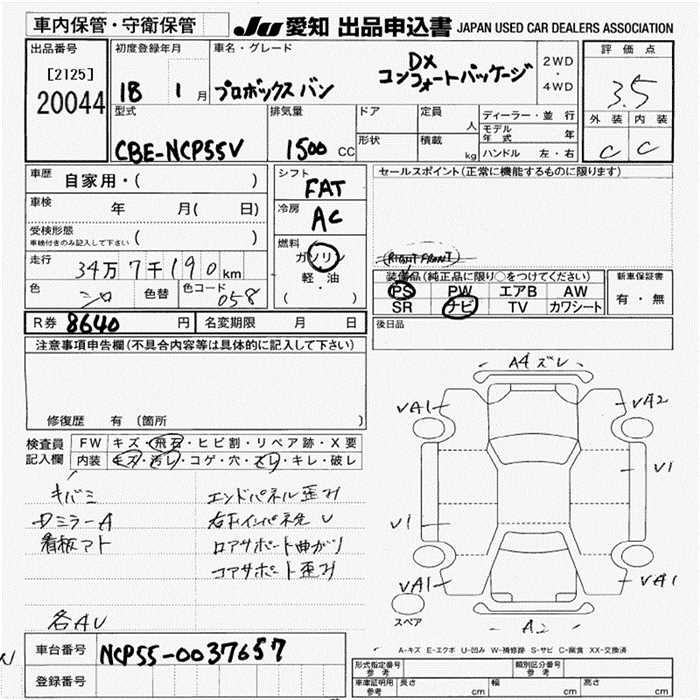 車内保管・守衛保管
Ju 愛知 出品申込書 JAPAN USED CAR DEALERS ASSOCIATION
出品番号
[2125]
20044
初度登録年月
18 1月
車名・グレード
プロボックスバン
DX
コンフォートパッケージ
2WD
・
4WD
評価点
3.5
外装 内装
C C
型式
CBE-NCP55V
排気量
1500 CC
ドア
形状
定員
人
積載
kg
ディーラー・並行
モデル年式 年
ハンドル 左・右
車歴 自家用・( )
車検 年 月( 日)
受検形態
車検付きのみ記入して下さい ( )
走行 34万7千190km
色 シロ 色替 色コード 058
R券 8640 円 名変期限 月 日
シフト
FAT
冷房
AC
燃料
ガソリン
軽・油
( ・ )
セールスポイント(正常に機能するものに限ります)
(RIGHT FRONT)
装備品(純正品に限り○をつけてください)
PS PW エアB AW
SR ナビ TV カワシート
新車保証書
有・無
後日品
注意事項申告欄(不具合内容等は具体的に記入して下さい)
修復歴 有 〔箇所 〕
検査員
記入欄
FW キズ・飛石・ヒビ割・リペア跡・X要
内装 キズ・汚レ・コゲ・穴・スレ・キレ・破レ
キバミ
Dミラー A
看板アト
各AU
エンドパネル歪み
右Fインパネ先 U
ロアサポート曲がり
コアサポート歪み
A4 ズレ
VA1
VA2
V1
V1
VA1
VA1
スペア
A2
A-キズ E-エクボ U-凹み W-補修跡 S-サビ C-腐食 XX-交換済
車台番号 NCP55-0037657
登録番号
形式指定番号
参考
類別区分番号
参考
車庫証明用
参考
長さ cm
幅 cm
高さ cm